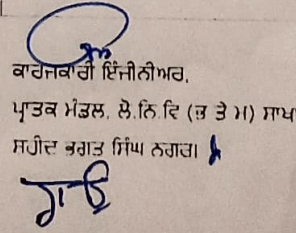 ਕਾਰਜਕਾਰੀ ਇੰਜੀਨੀਅਰ,
ਪ੍ਰਾਂਤਕ ਮੰਡਲ, ਲੋ.ਨਿ.ਵਿ (ਭ ਤੇ ਮ) ਸਾਖ
ਸਹੀਦ ਭਗਤ ਸਿੰਘ ਨਗਰ।